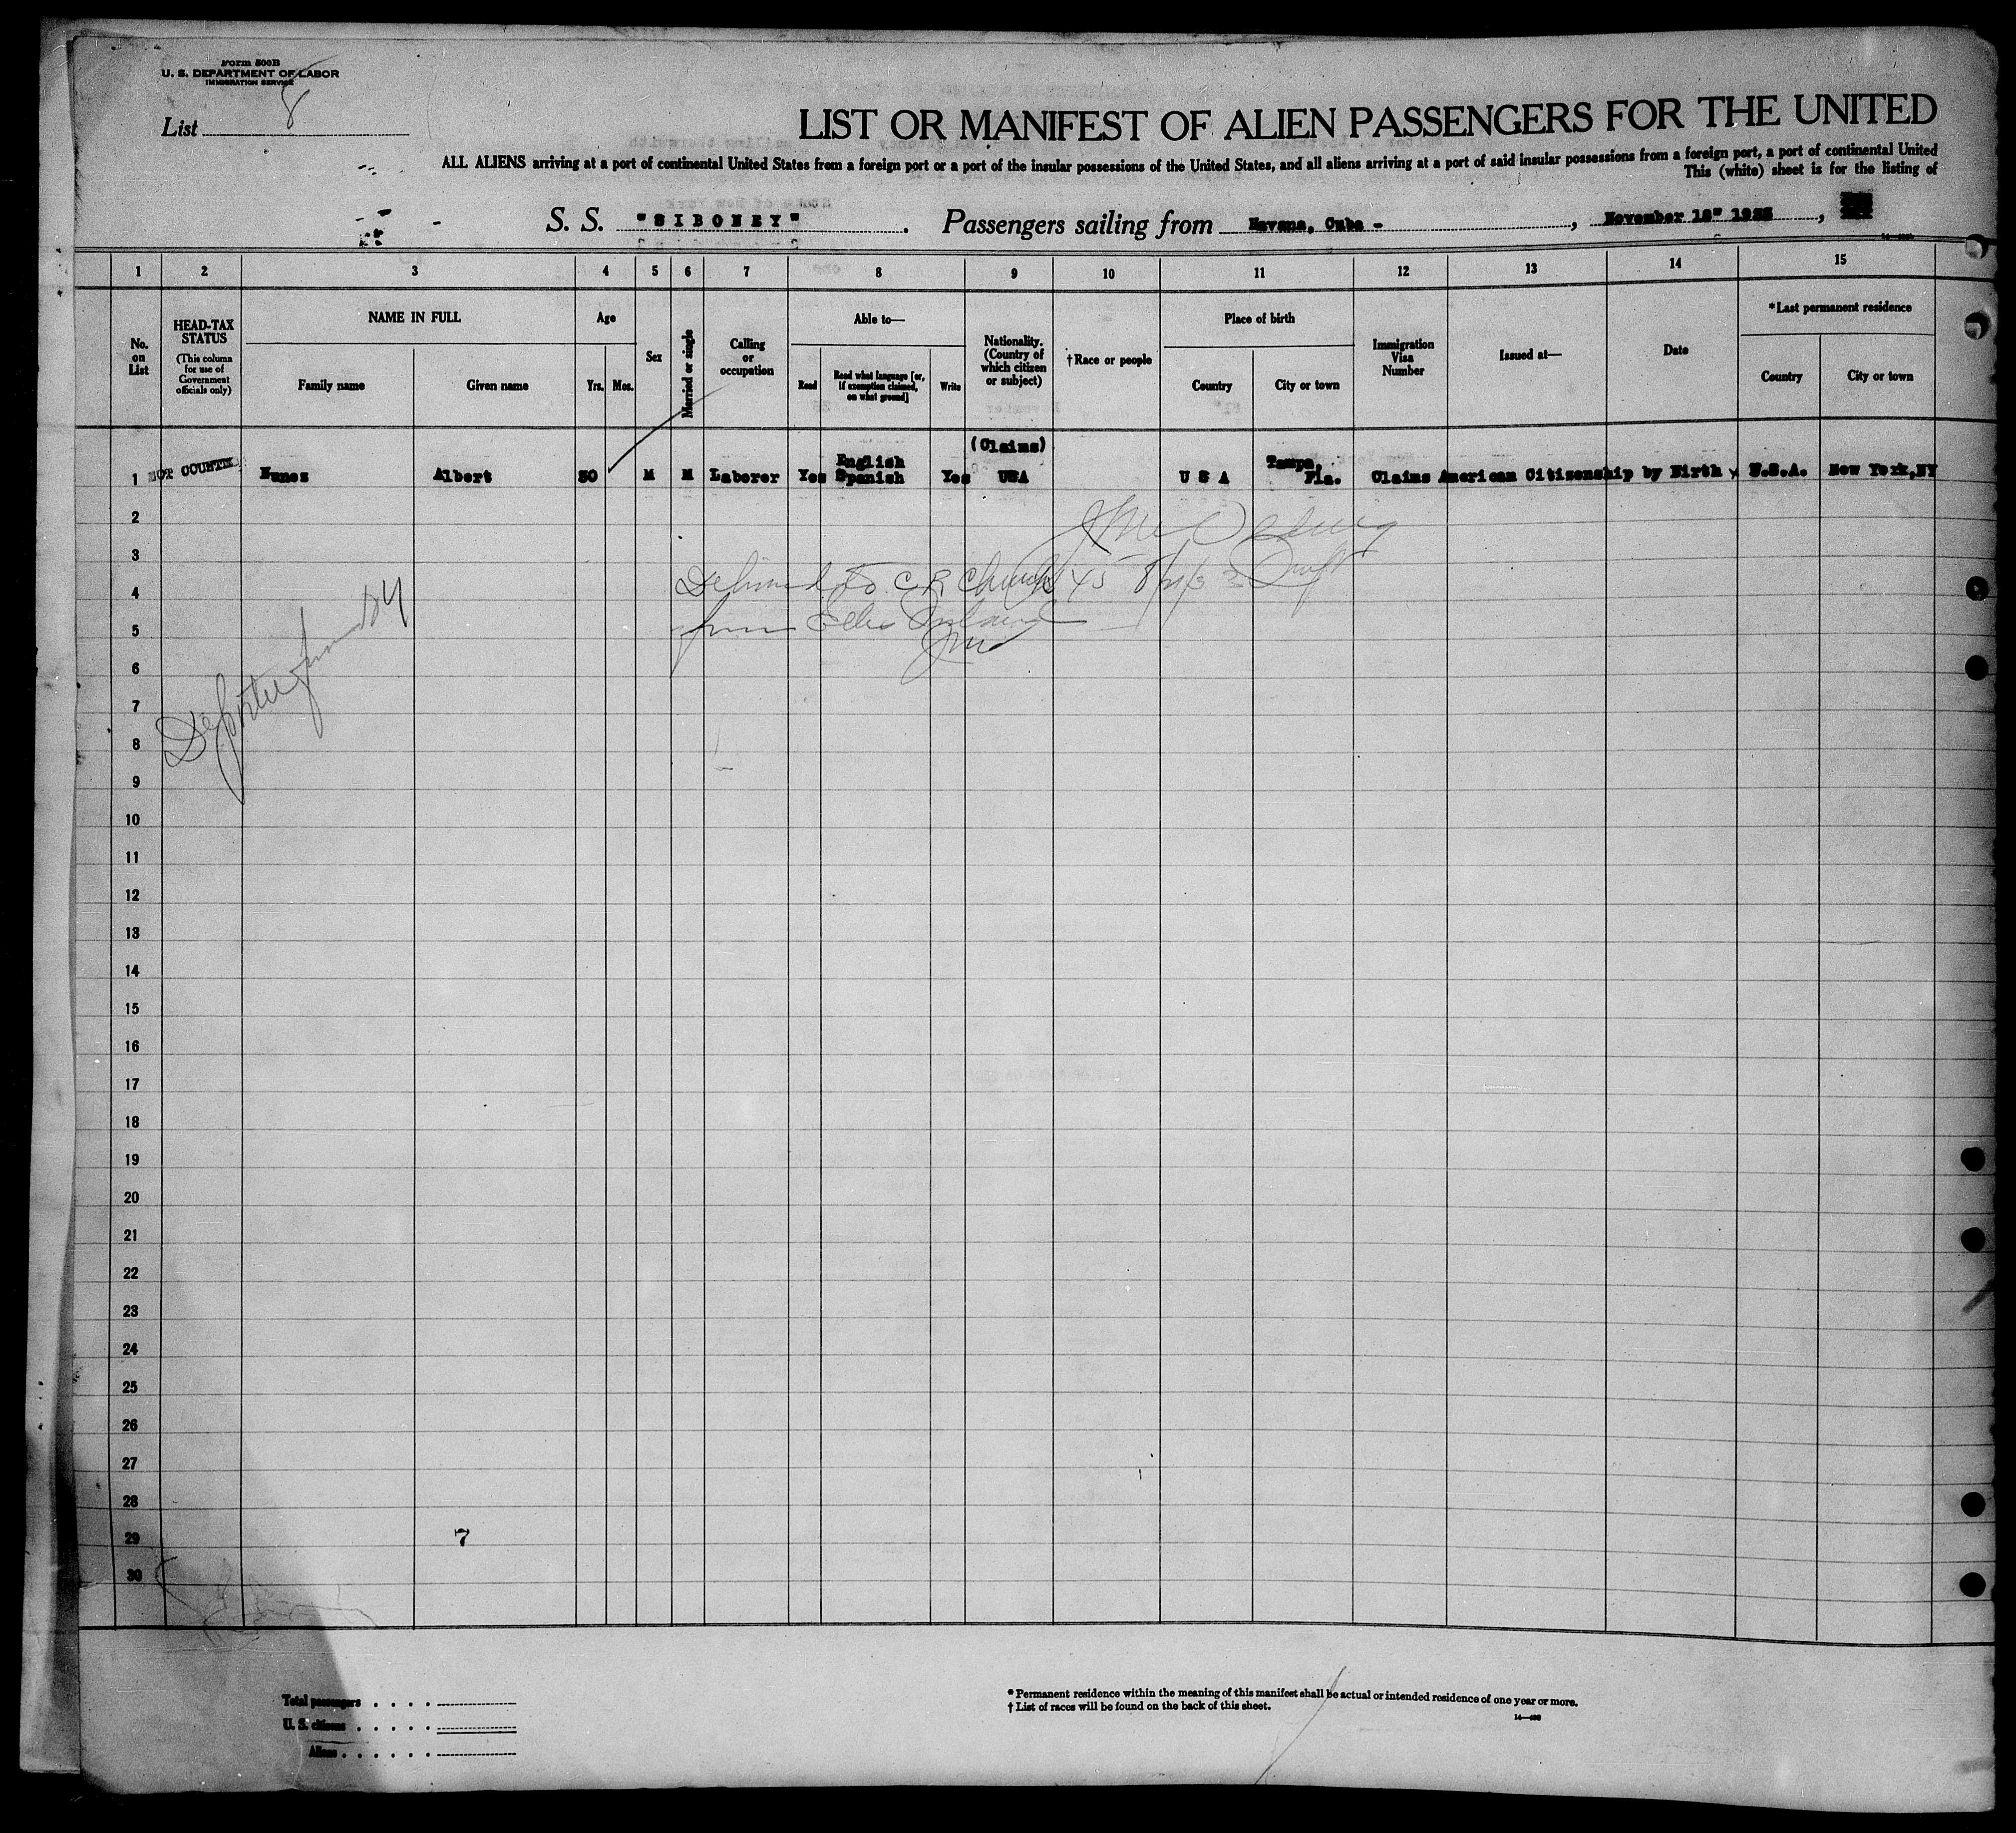 Form 500B
U. S. DEPARTMENT OF LABOR
IMMIGRATION SERVICE
List 8
LIST OR MANIFEST OF ALIEN PASSENGERS FOR THE UNITED
ALL ALIENS arriving at a port of continental United States from a foreign port or a port of the insular possessions of the United States, and all aliens arriving at a port of said insular possessions from a foreign port, a port of continental United
This (white) sheet is for the listing of
S. S. "SIBONEY". Passengers sailing from Havana, Cuba - , November 18"
1 2 3 4 5 6 7 8 9 10 11 12 13 14 15
No. on List
HEAD-TAX STATUS (This column for use of Government officials only)
NAME IN FULL
Family name Given name
Age
Yrs. Mos.
Sex
Married or single
Calling or occupation
Able to—
Read Read what language [or, if exemption claimed, on what ground] Write
Nationality. (Country of which citizen or subject)
† Race or people
Place of birth
Country City or town
Immigration Visa Number
Issued at—
Date
*Last permanent residence
Country City or town
1 NOT COUNTED Nunez Albert 30 M M Laborer Yes English Spanish Yes (Claims) USA U S A Tampa, Fla. Claims American Citizenship by Birth U.S.A. New York, NY
2
3
4
from Ellis Island
5
6
7
8
9
10
11
12
13
14
15
16
17
18
19
20
21
22
23
24
25
26
27
28
29 7
30
Total passengers
U. S. citizens
Aliens
* Permanent residence within the meaning of this manifest shall be actual or intended residence of one year or more.
† List of races will be found on the back of this sheet.